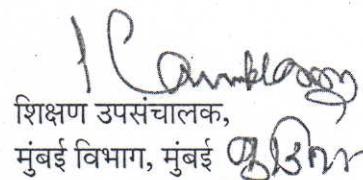 शिक्षण उपसंचालक,
मुंबई विभाग, मुंबई